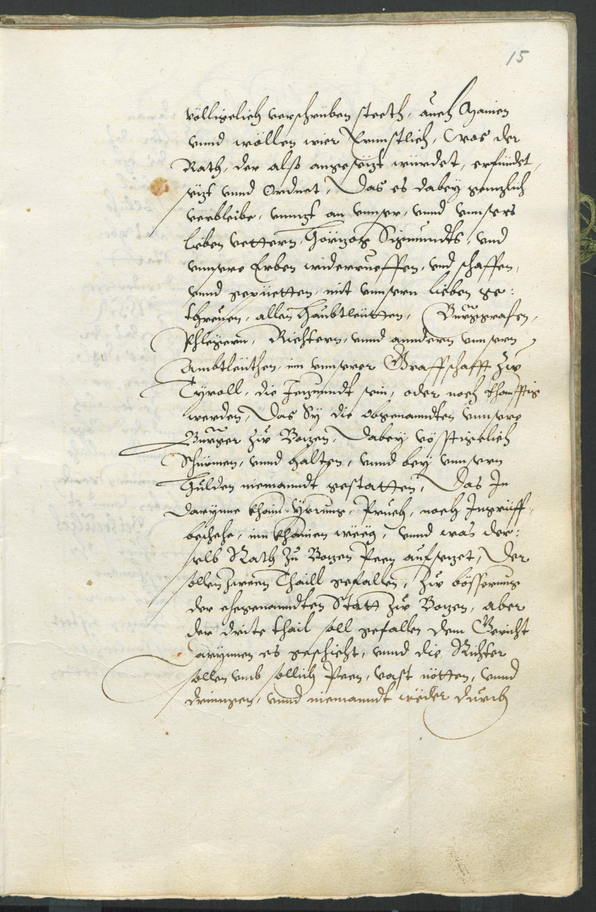 15
völligelich verschriben steeth, auch Mainen
vnnd wöllen wier Ernnstlich, Was der
Rath, der also angesetzt würdet, erfündet,
setzt vnnd Ordnet, Das es dabey genntzlich
verbleibe, vnntz an vnnser, vnnd vnnsers
lieben vettern, Hörtzog Sigmundts, vnd
vnnsere Erben widerrueffen, vnd schaffen,
vnnd gepietten, mit vnnsern lieben ge:
threuen, allen Haubtleütten, Burggrafen,
Phlegern, Richtern, vnnd anndern vnnsern
Ambtleüthen, im vnnserer Graffschafft zu
Tyroll, die Jetzunndt sein, oder noch khonfftig
werden, Das Sy die obgenanndten vnnsere
Burger zu Botzen, Dabey vösstigelich
Schürmen, vnnd halten, vnnd bey vnnsern
Hulden niemanndt gestatten, Das In
darynne khain Yrrung, Pruch, noch Ingriff
beschehe, inn khainen weeg, vnnd was der:
selb Rath zu Botzen Peen aufsetzet, Der
sollen zwenn Thaill gefallen, Zu bösserung
der ehegenanndten Statt zu Botzen, aber
der drite thail soll gefallen dem Gericht
darynnen es geschieht, vnnd die Richter
sollen vmb sollich Peen, vasst nötten, vnnd
dringen, vnnd niemanndt weder durch